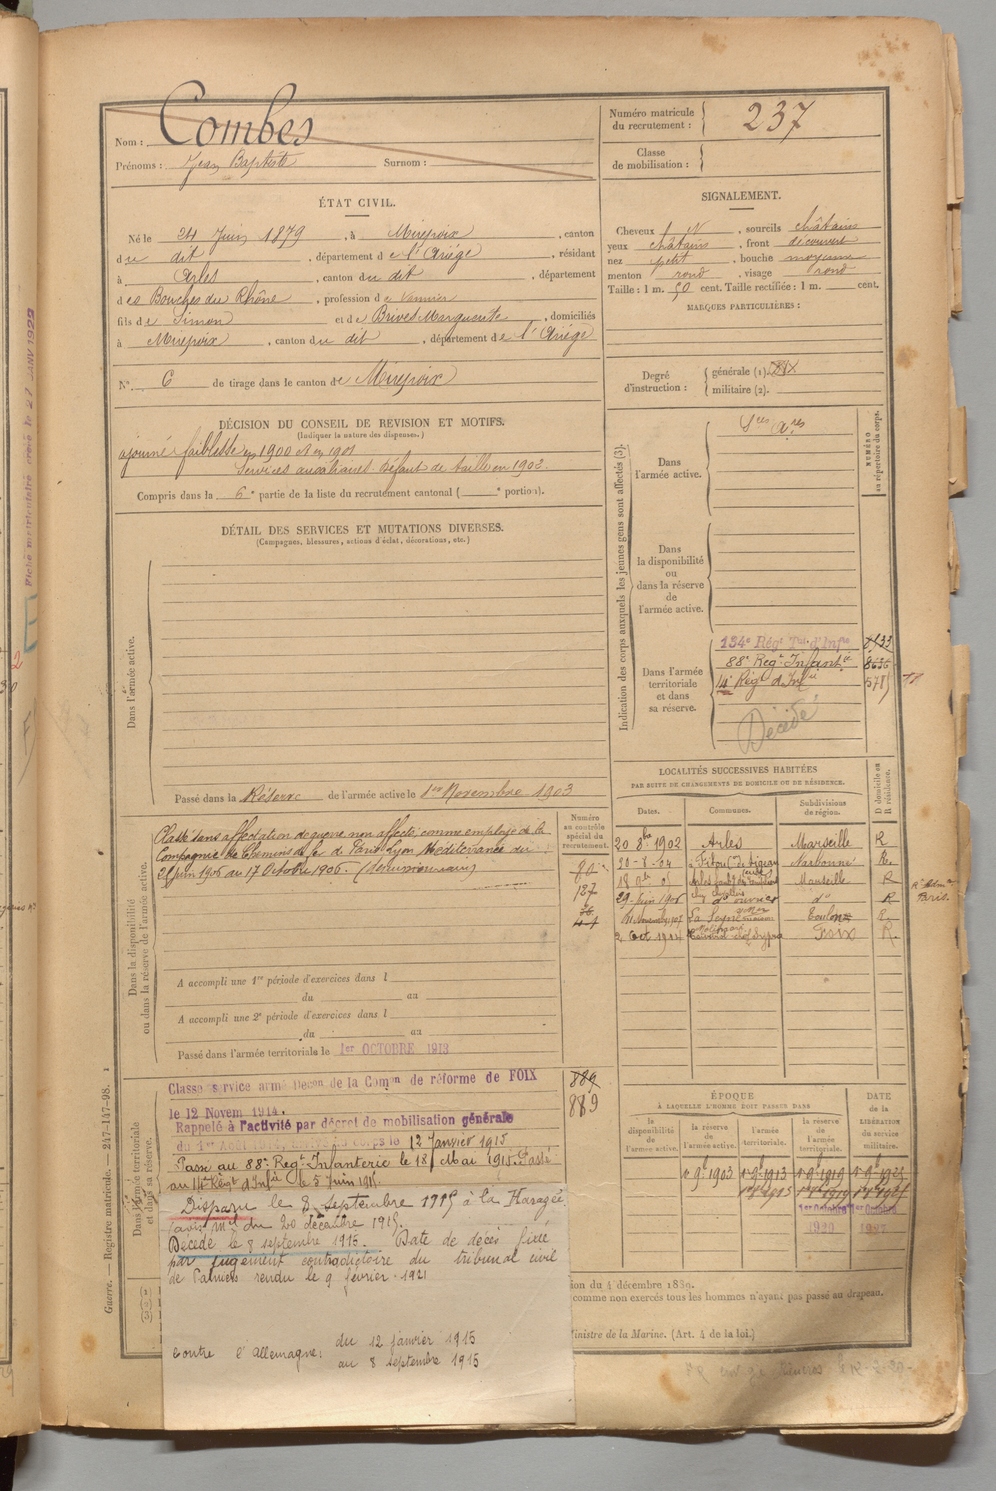 Nom : Combes
Prénoms : Jean Baptiste Surnom :
Numéro matricule du recrutement : 237
Classe de mobilisation :
ÉTAT CIVIL.
Né le 24 Juin 1879, à Mirepoix, canton
du dit, département de l'Ariège, résidant
à Arles, canton du dit, département
des Bouches du Rhône, profession de vannier
fils de Simon et de Brives Marguerite, domiciliés
à Mirepoix, canton du dit, département de l'Ariège
N° 6 de tirage dans le canton de Mirepoix
SIGNALEMENT.
Cheveux N, sourcils châtains
yeux châtains, front découvert
nez petit, bouche moyenne
menton rond, visage rond
Taille : 1 m. 50 cent. Taille rectifiée : 1 m. cent.
MARQUES PARTICULIÈRES :
Degré d'instruction : générale (1).
militaire (2).
DÉCISION DU CONSEIL DE REVISION ET MOTIFS.
(Indiquer la nature des dispenses.)
ajourné faiblesse en 1900 et en 1901
Services auxiliaires Défaut de taille en 1902.
Compris dans la 6e partie de la liste du recrutement cantonal ( e portion).
DÉTAIL DES SERVICES ET MUTATIONS DIVERSES.
(Campagnes, blessures, actions d'éclat, décorations, etc.)
Dans l'armée active.
Passé dans la Réserve de l'armée active le 1er Novembre 1903
Indication des corps auxquels les jeunes gens sont affectés (3).
NUMÉRO au répertoire du corps.
Dans l'armée active.
Sces Ares
Dans la disponibilité ou dans la réserve de l'armée active.
Dans l'armée territoriale et dans sa réserve.
134e Régt Tal d'Infie
88e Régt Infantie
14e Régt d'Infie
Décédé
Dans la disponibilité ou dans la réserve de l'armée active.
Numéro au contrôle spécial du recrutement.
Classé sans affectation de guerre non affecté, comme employé de la
Compagnie de Chemins de fer de Paris Lyon Méditerranée du
21 Juin 1906 au 17 Octobre 1906.
A accompli une 1re période d'exercices dans l
du au
A accompli une 2e période d'exercices dans l
du au
Passé dans l'armée territoriale le 1er OCTOBRE 1913
LOCALITÉS SUCCESSIVES HABITÉES
PAR SUITE DE CHANGEMENTS DE DOMICILE OU DE RÉSIDENCE.
Dates. Communes. Subdivisions de région. D domicile ou R résidence.
20 8bre 1902 Arles Marseille R
Narbonne R
Marseille R
29 Juin 1906 do R
La Seyne Toulon R
2 Oct 1914 Foix R.
Rt Adm. Paris.
Dans l'armée territoriale et dans sa réserve.
Classé service armé Décon de la Comon de réforme de FOIX
le 12 Novem 1914.
Rappelé à l'activité par décret de mobilisation générale
du 1er Août 1914, Arrivé au corps le 12 Janvier 1915
Passé au 88e Régt Infanterie le 18 Mai 1915. Passé
au 14e Régt d'Infie le 5 Juin 1915.
889
889
Disparu le 8 septembre 1915 à la Harazée
(avis mel du 20 décembre 1915.
Décédé le 8 septembre 1915. Date de décès fixée
par jugement contradictoire du tribunal civil
de Pamiers rendu le 9 février 1921
contre l'Allemagne: du 12 janvier 1915
au 8 septembre 1915
ÉPOQUE
À LAQUELLE L'HOMME DOIT PASSER DANS
DATE de la LIBÉRATION du service militaire.
la disponibilité de l'armée active. la réserve de l'armée active. l'armée territoriale. la réserve de l'armée territoriale.
1er 9bre 1903
1er Octobre 1er Octobre
ion du 4 décembre 1889.
comme non exercés tous les hommes n'ayant pas passé au drapeau.
inistre de la Marine. (Art. 4 de la loi.)
Guerre. — Registre matricule. — 247-147-98.
Fiche matriculaire créée le 21 JANV 1929